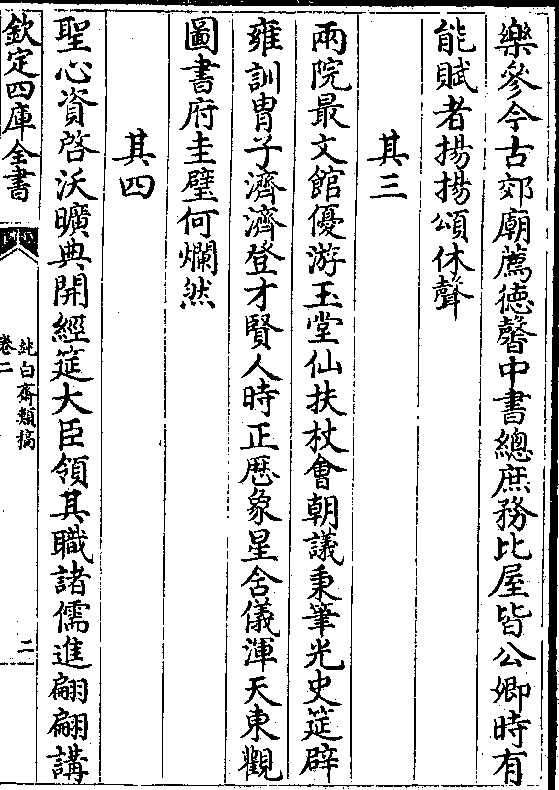 樂參今古郊廟薦徳馨中書總庶務比屋皆公卿時有
能賦者揚揚頌休聲
其三
兩院最文館優游玉堂仙扶杖會朝議秉筆光史筵辟
雍訓胄子濟濟登才賢人時正厯象星舎儀渾天東觀
圖書府圭璧何爛然
其四
聖心資啓沃曠典開經筵大臣領其職諸儒進翩翩講
欽定四庫全書
純白齋類稿
卷二
二